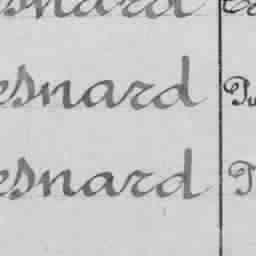 esnard
esnard
esnard